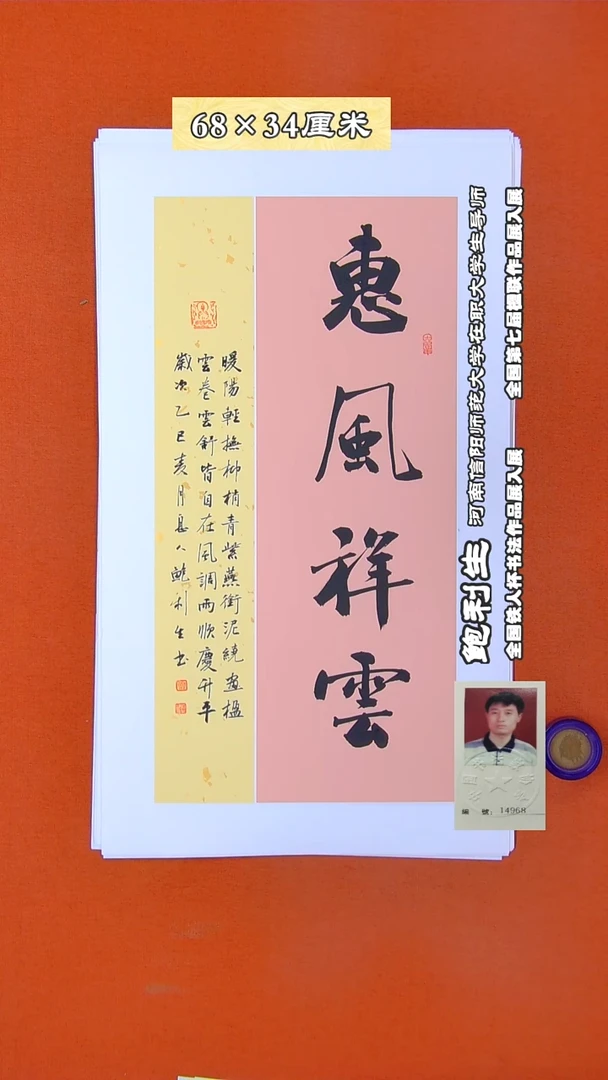 68×34厘米
惠風祥雲
暖陽輕撫柳梢青紫燕銜泥繞畫楹
雲卷雲舒皆自在風調雨順慶升平
歲次乙巳亥月息人鮑利生书
鲍利生
河南信阳师范大学在职大学生导师
全国铁人杯书法作品展入展
全国第七届楹联作品展入展
編號:14968